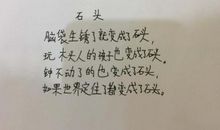 石头
脑袋生锈了就变成了石头,
玩木头人的孩子也变成了石头,
钟不动了的也变成了石头,
如果世界定住了都变成了石头。